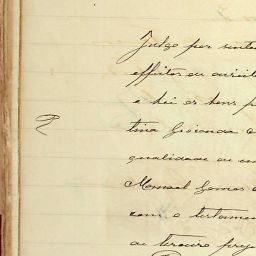 Julgo por sente
effeitos ou
e hei os bens p
tina Gioconda
qualidade ou
Manoel Gomes
com o testamen
ao terceiro prej